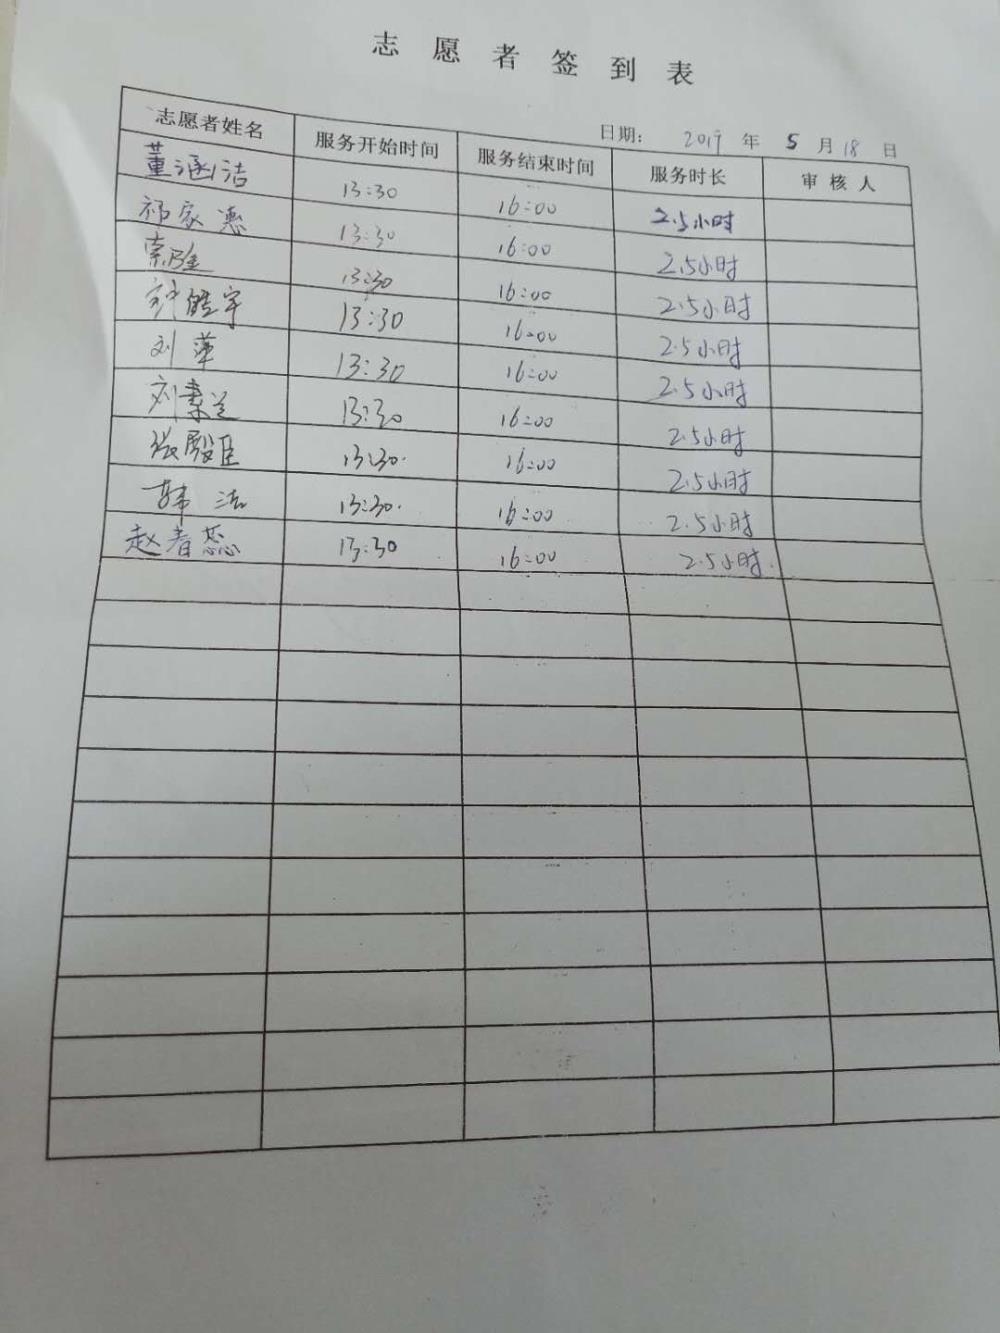 志愿者签到表
日期: 2019 年 5 月 18 日
志愿者姓名 服务开始时间 服务结束时间 服务时长 审核人
董涵洁 13:30 16:00 2.5小时
祁家惠 13:30 16:00 2.5小时
13:30 16:00 2.5小时
皓宇 13:30 16:00 2.5小时
刘萍 13:30 16:00 2.5小时
刘素兰 13:30 16:00 2.5小时
张殿臣 13:30 16:00 2.5小时
韩洁 13:30 16:00 2.5小时
赵春蕊 13:30 16:00 2.5小时